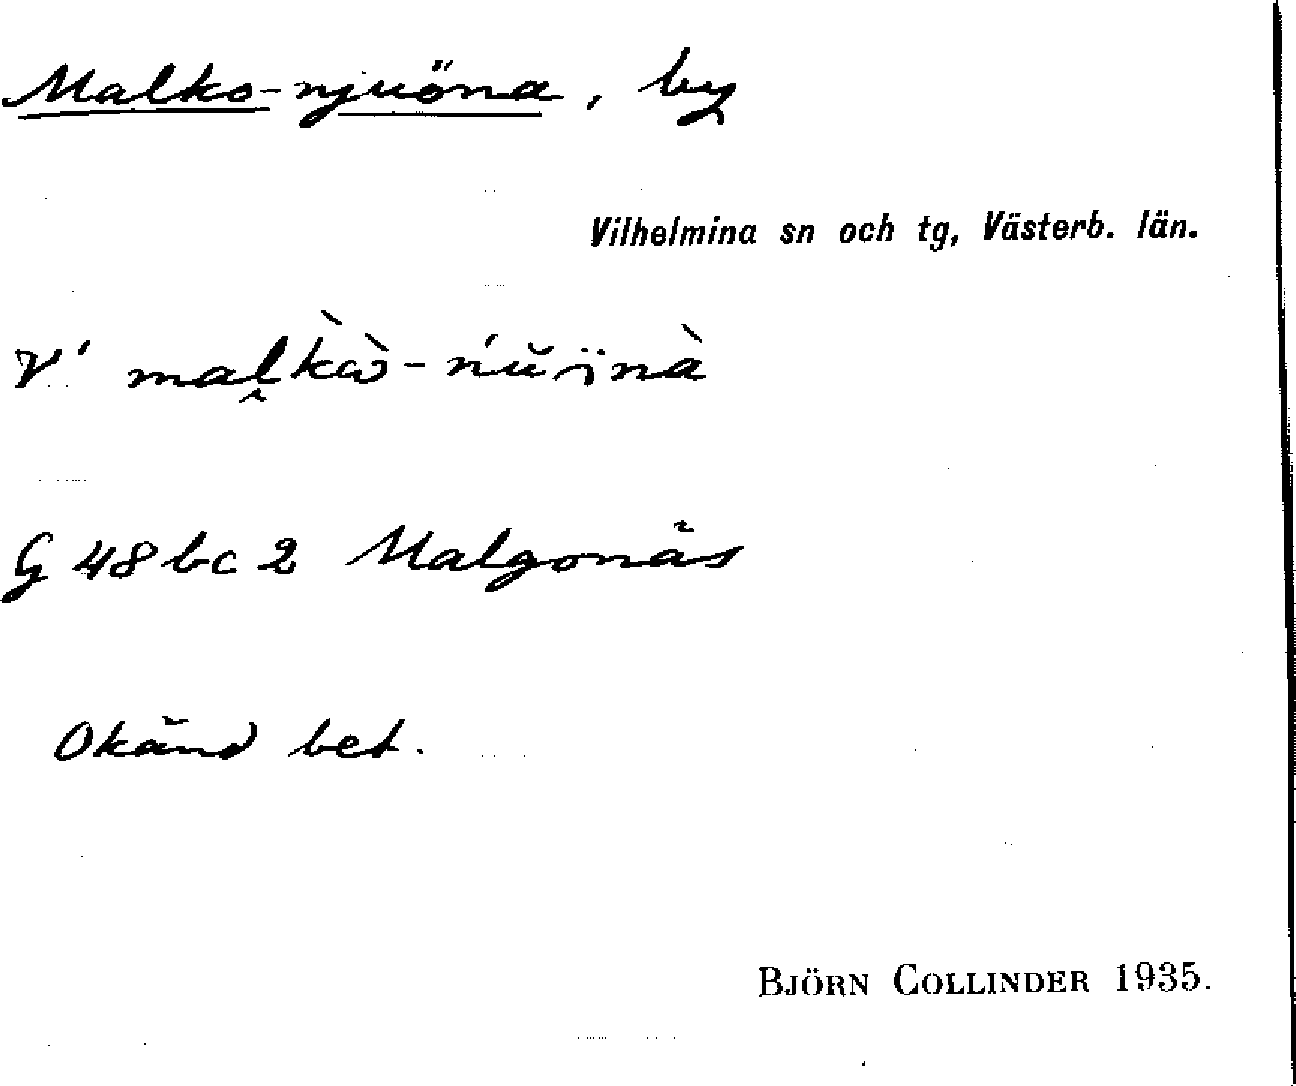 Malko-njuöna, by
Vilhelmina sn och tg, Västerb. län.
V'
G 48 bc 2 Malgonäs
Okänd bet.
BJÖRN COLLINDER 1935.